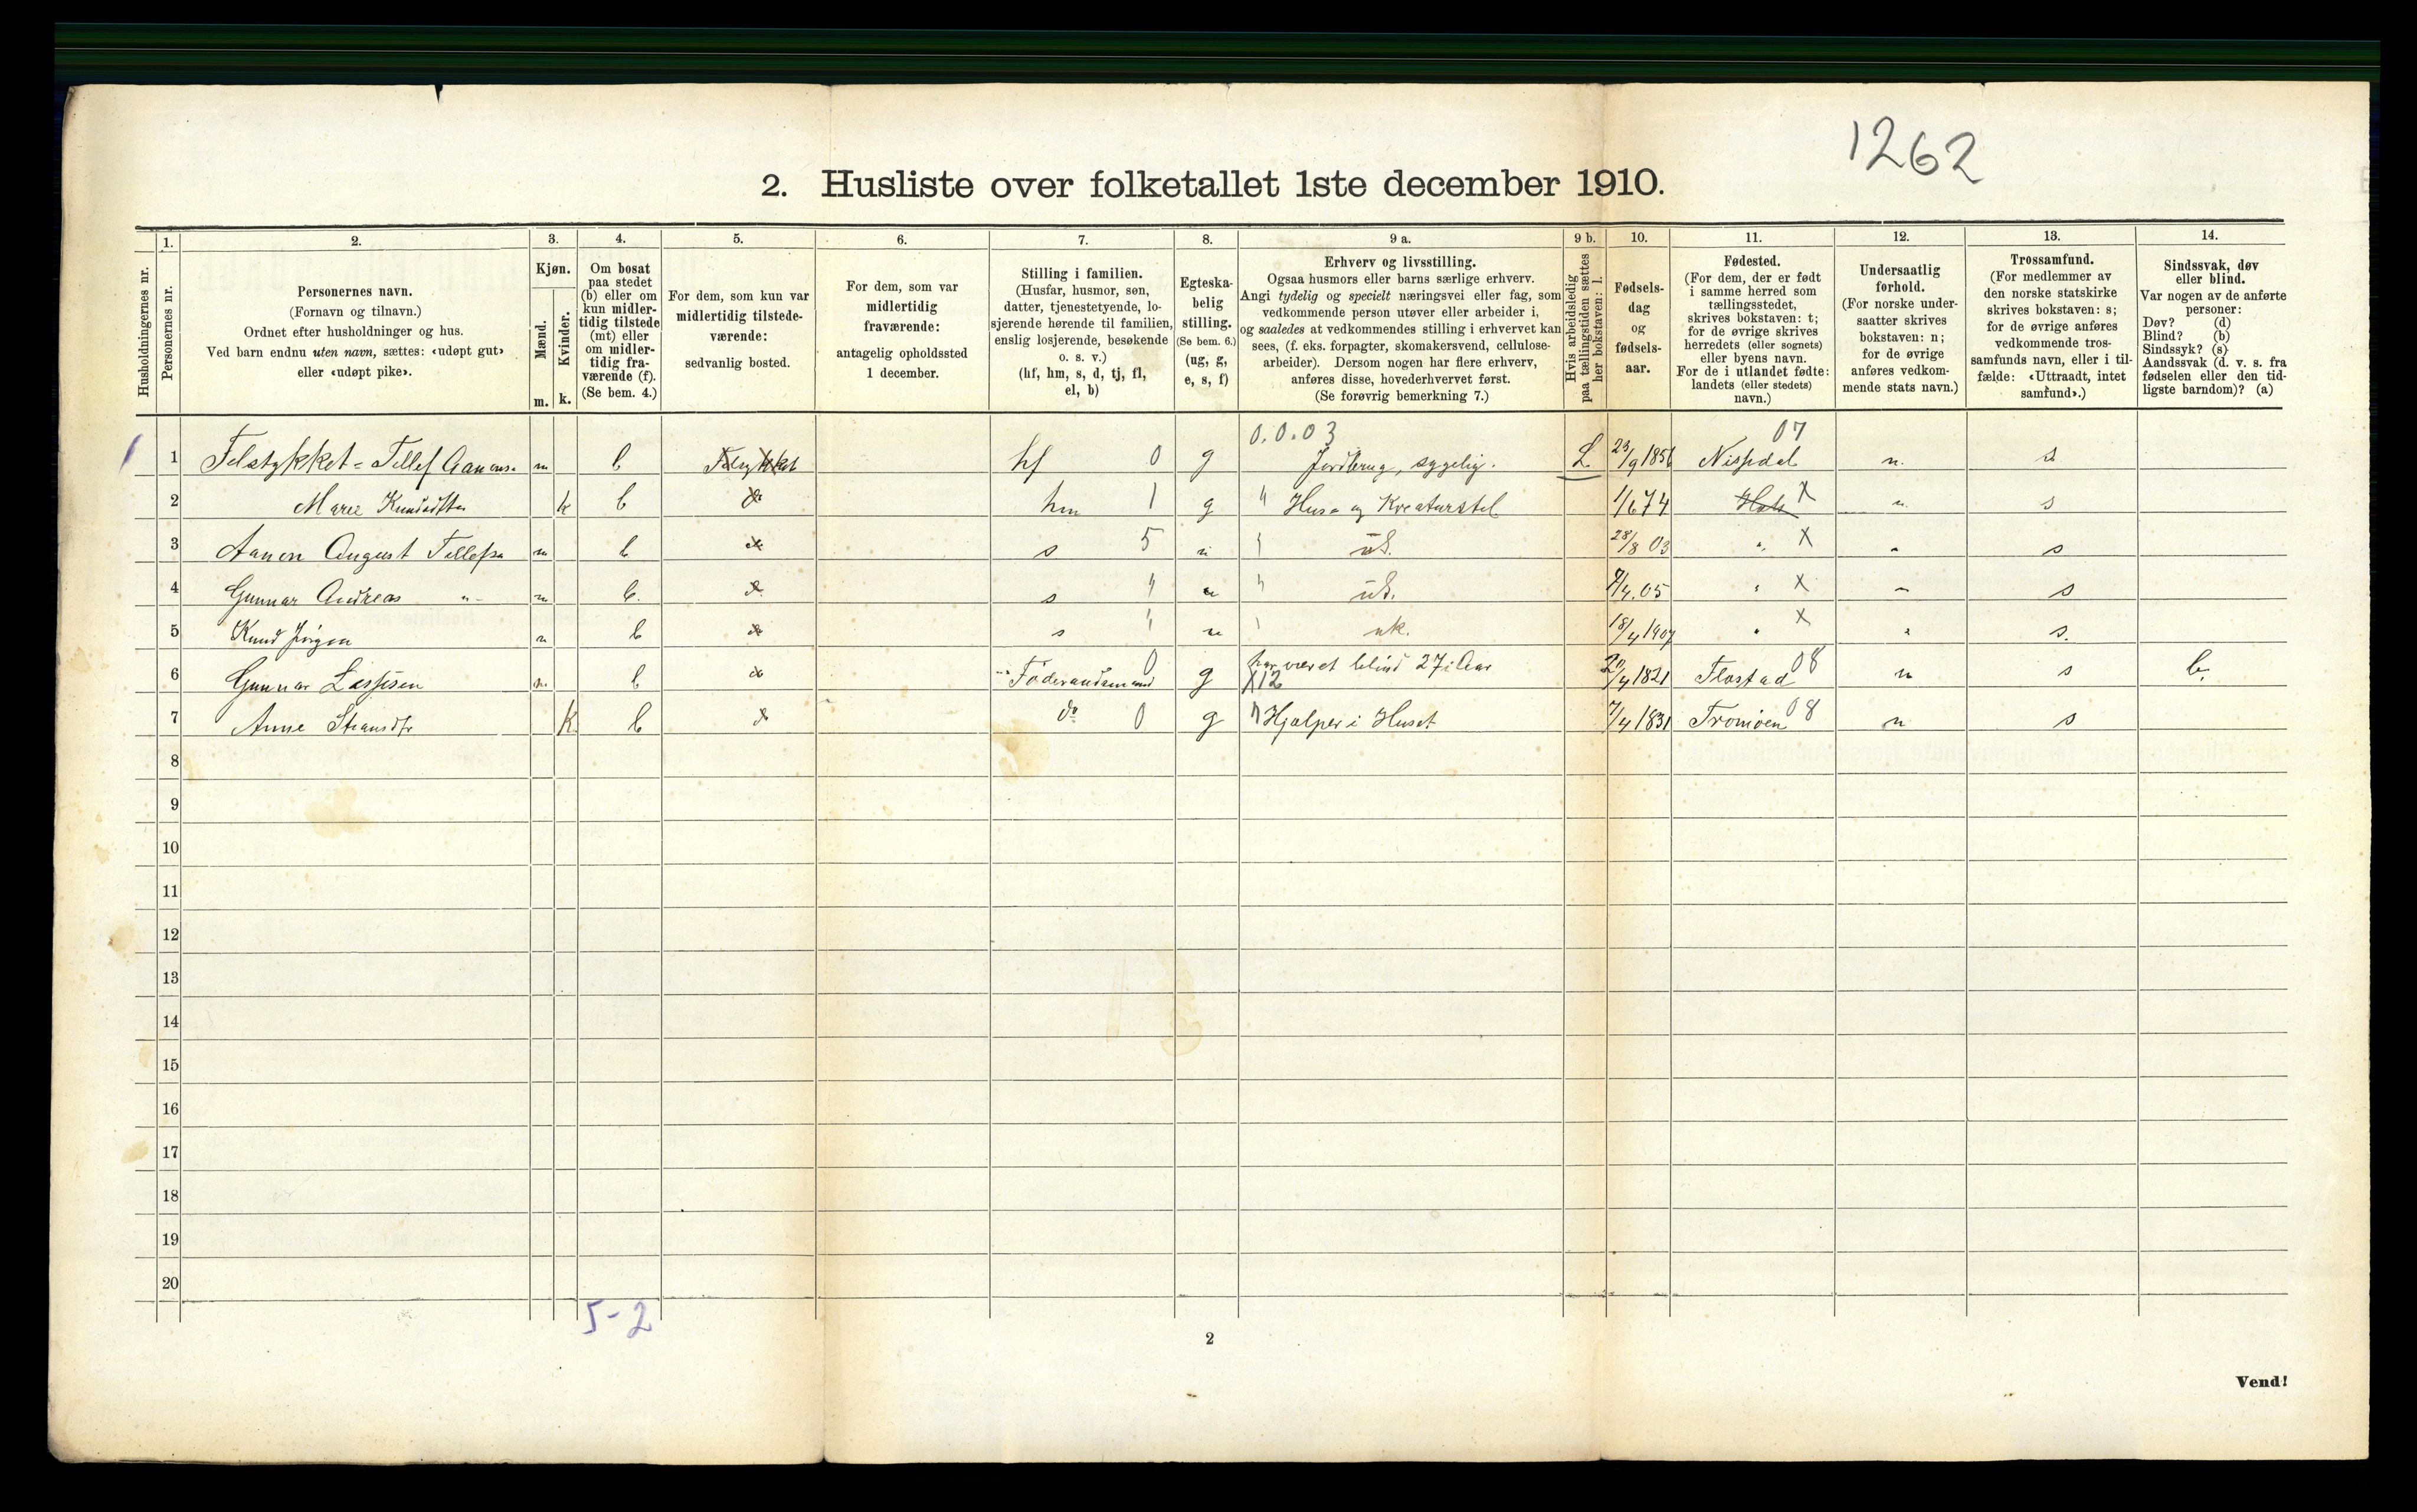 1262
2. Husliste over folketallet 1ste december 1910.
Husholdningernes nr.
1. Personernes nr.
2. Personernes navn.
(Fornavn og tilnavn.)
Ordnet efter husholdninger og hus.
Ved barn endnu uten navn, sættes: «udøpt gut»
eller «udøpt pike».
3. Kjøn.
Mænd. m.
Kvinder. k.
4. Om bosat
paa stedet
(b) eller om
kun midler-
tidig tilstede
(mt) eller
om midler-
tidig fra-
værende (f).
(Se bem. 4.)
5. For dem, som kun var
midlertidig tilstede-
værende:
sedvanlig bosted.
6. For dem, som var
midlertidig
fraværende:
antagelig opholdssted
1 december.
7. Stilling i familien.
(Husfar, husmor, søn,
datter, tjenestetyende, lo-
sjerende hørende til familien,
enslig losjerende, besøkende
o. s. v.)
(hf, hm, s, d, tj, fl,
el, b)
8. Egteska-
belig
stilling.
(Se bem. 6.)
(ug, g,
e, s, f)
9 a. Erhverv og livsstilling.
Ogsaa husmors eller barns særlige erhverv.
Angi tydelig og specielt næringsvei eller fag, som
vedkommende person utøver eller arbeider i,
og saaledes at vedkommendes stilling i erhvervet kan
sees, (f. eks. forpagter, skomakersvend, cellulose-
arbeider). Dersom nogen har flere erhverv,
anføres disse, hovederhvervet først.
(Se forøvrig bemerkning 7.)
9 b. Hvis arbeidsledig
paa tællingstiden sættes
her bokstaven: l.
10. Fødsels-
dag
og
fødsels-
aar.
11. Fødested.
(For dem, der er født
i samme herred som
tællingsstedet,
skrives bokstaven: t;
for de øvrige skrives
herredets (eller sognets)
eller byens navn.
For de i utlandet fødte:
landets (eller stedets)
navn.)
12. Undersaatlig
forhold.
(For norske under-
saatter skrives
bokstaven: n;
for de øvrige
anføres vedkom-
mende stats navn.)
13. Trossamfund.
(For medlemmer av
den norske statskirke
skrives bokstaven: s;
for de øvrige anføres
vedkommende tros-
samfunds navn, eller i til-
fælde: «Uttraadt, intet
samfund».)
14. Sindssvak, døv
eller blind.
Var nogen av de anførte
personer:
Døv? (d)
Blind? (b)
Sindssyk? (s)
Aandssvak (d. v. s. fra
fødselen eller den tid-
ligste barndom)? (a)
0.0.03 07
1 m b hf 0 g Jordbrug, sygelig. L 23/9 1856 Nissedal n. s
2 Marie k b hm 1 g " Hus- og Kreaturstel 1/6 74 X s
3 Aanen August Tellefsn m b s 5 28/8 03 " X s
4 Gunnar Andreas " m b. s " " 7/4.05 " X s
5 Knud Jørgen b s " 18/4 1907 " X s.
har været blind 27 i Aar
6 Gunnar m b Föderaadsmand 0 g X12 /4 1821 Flostad 08 n s b.
7 Anne k b do 0 g " Hjælper i Huset 7/4 1831 Tromöen 08 n s
8
9
10
11
12
13
14
15
16
17
18
19
20
5-2
2
Vend!